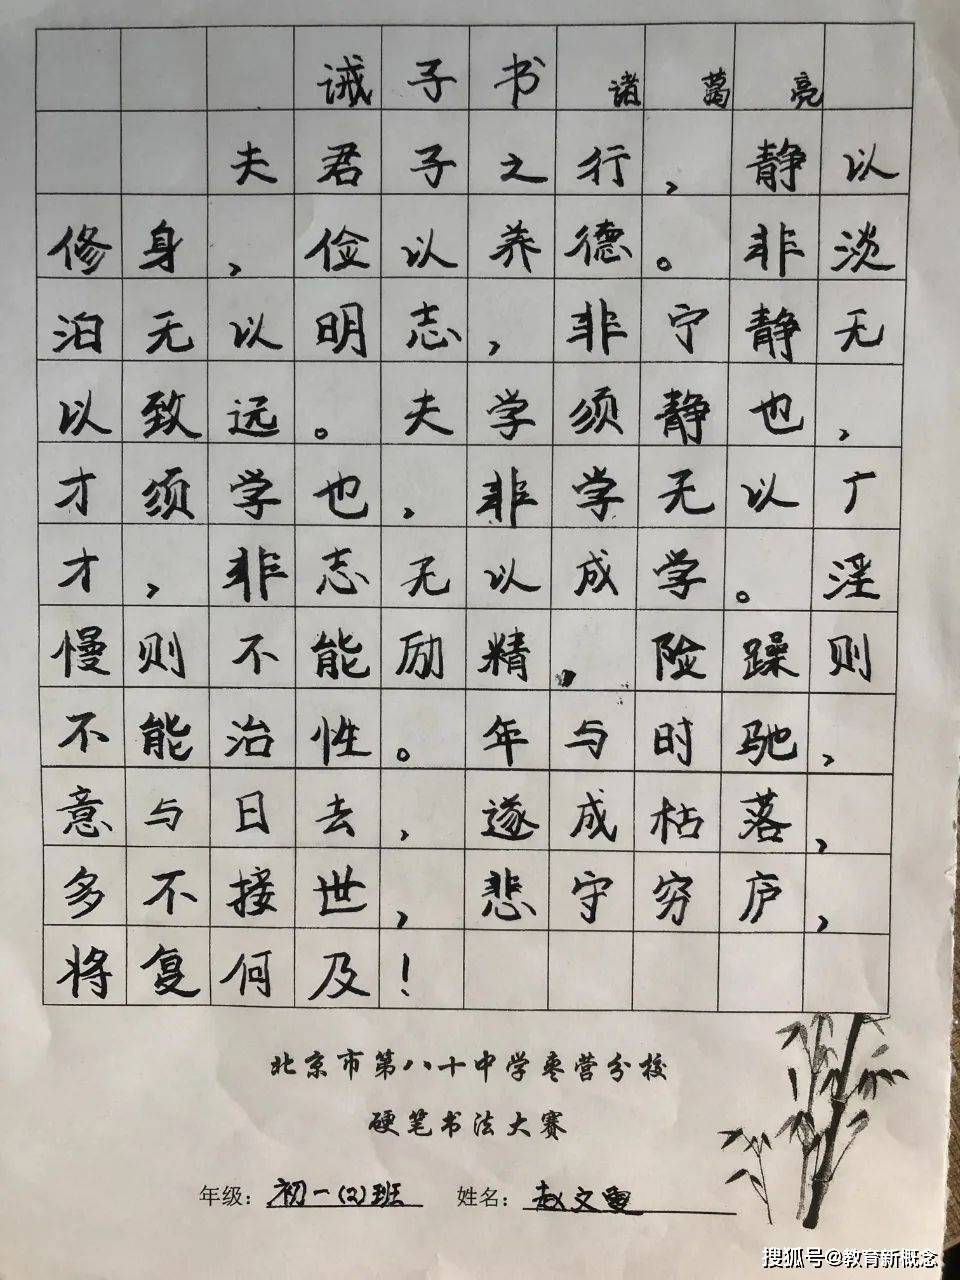 诫子书 诸葛亮
夫君子之行，静以
修身，俭以养德。非淡
泊无以明志，非宁静无
以致远。夫学须静也，
才须学也，非学无以广
才，非志无以成学。淫
慢则不能励精，险躁则
不能治性。年与时驰，
意与日去，遂成枯落，
多不接世，悲守穷庐，
将复何及！
北京市第八十中学枣营分校
硬笔书法大赛
年级：初一(2)班 姓名：赵文
搜狐号@教育新概念